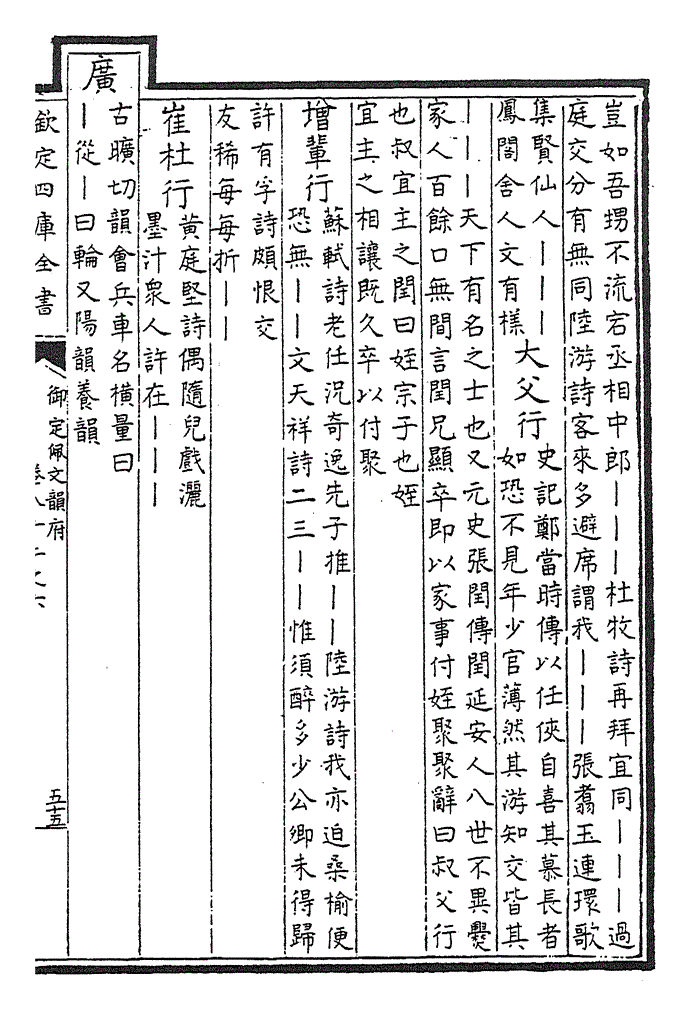 豈如吾甥不流宕丞相中郎丨丨丨杜牧詩再拜宜同丨丨丨過
庭交分有無同陸游詩客來多避席謂我丨丨丨張翥玉連環歌
集賢仙人丨丨丨
鳳閣舍人文有樣
大父行
史記鄭當時傳以任俠自喜其慕長者
如恐不見年少官薄然其游知交皆其
丨丨丨天下有名之士也又元史張閏傳閏延安人八世不異爨
家人百餘口無間言閏兄顯卒即以家事付姪聚聚辭曰叔父行
也叔宜主之閏曰姪宗子也姪
宜主之相讓既久卒以付聚
增輩行
蘇軾詩老任況奇逸先子推丨丨陸游詩我亦迫桑榆便
恐無丨丨文天祥詩二三丨丨惟須醉多少公卿未得歸
許有孚詩頗恨交
友稀每每折丨丨
崔杜行
黃庭堅詩偶隨兒戲灑
墨汁衆人許在丨丨丨
廣
古曠切韻會兵車名橫量曰
丨從丨曰輪又陽韻養韻
欽定四庫全書
御定佩文韻府
五十五